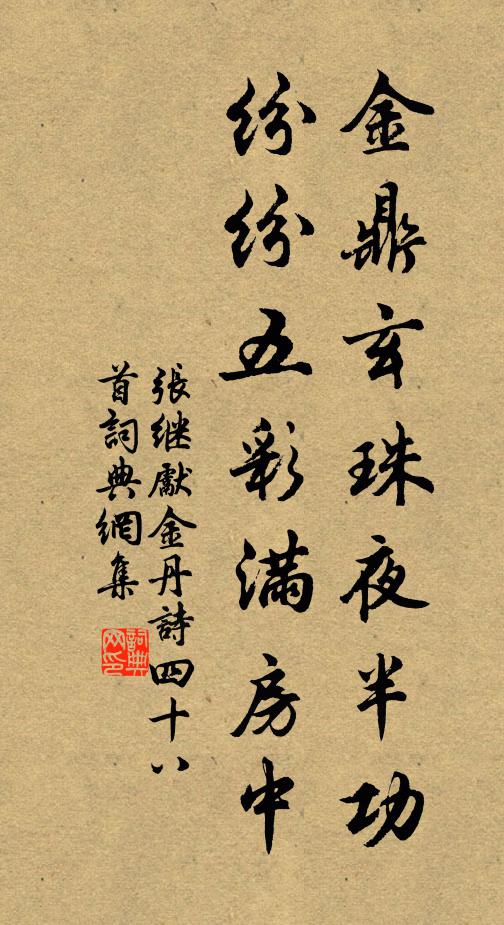 金鼎玄珠夜半功
紛紛五彩滿房中
張继獻金丹詩四十八
首詞典網集
詞典
网印